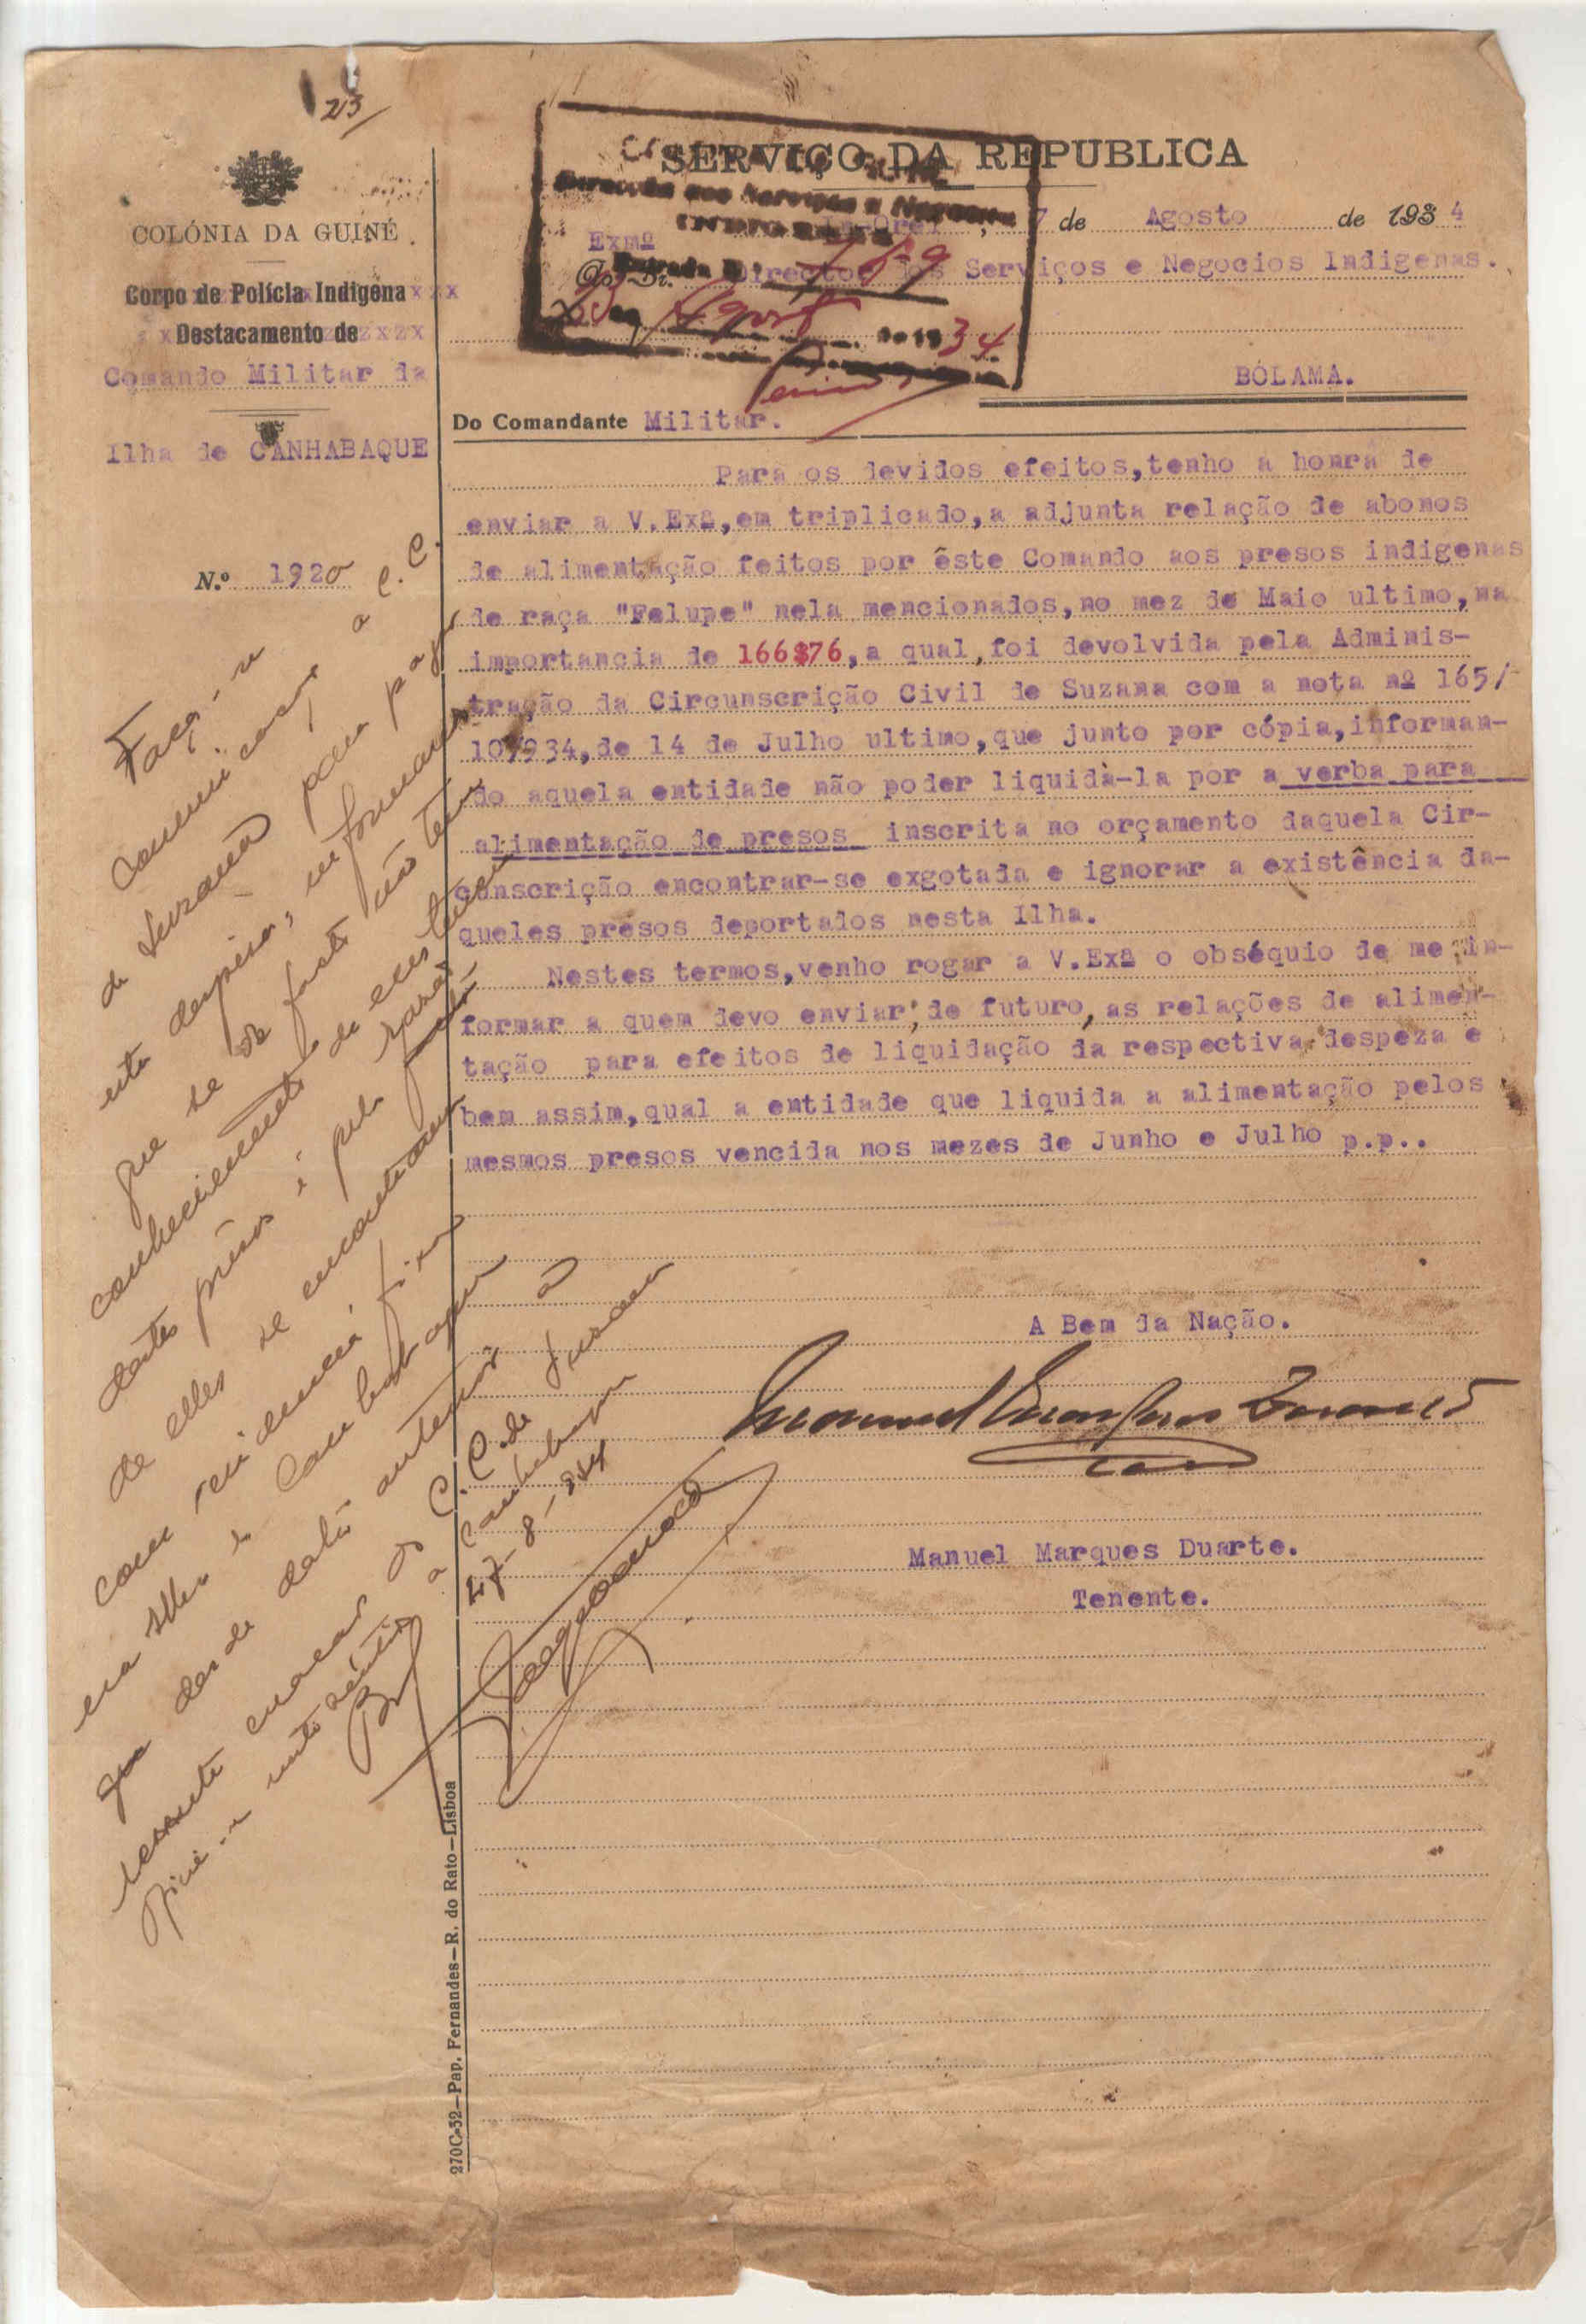 23
SERVIÇO DA REPUBLICA
COLÓNIA DA GUINÉ
Corpo de Polícia Indigena
Destacamento de
Comando Militar da
Ilha de CANHABAQUE
N.º 1920
7 de Agosto de 1934
Exmº
Director dos Serviços e Negocios Indigenas.
Agosto 1934
BOLAMA.
Do Comandante Militar.
Para os devidos efeitos,tenho a honra de
enviar a V.Exª,em triplicado,a adjunta relação de abonos
de alimentação feitos por êste Comando aos presos indigenas
de raça "Felupe" nela mencionados,no mez de Maio ultimo,na
importancia de 166$76,a qual,foi devolvida pela Adminis-
tração da Circunscrição Civil de Suzana com a nota nº 165/
10/934,de 14 de Julho ultimo,que junto por cópia,informan-
do aquela entidade não poder liquidà-la por a verba para
alimentação de presos inscrita no orçamento daquela Cir-
conscrição encontrar-se exgotada e ignorar a existência da-
queles presos deportados nesta Ilha.
Nestes termos,venho rogar a V.Exª o obséquio de me in-
formar a quem devo enviar,de futuro,as relações de alimen-
tação para efeitos de liquidação da respectiva despeza e
bem assim,qual a entidade que liquida a alimentação pelos
mesmos presos vencida nos mezes de Junho e Julho p.p..
A Bem da Nação.
Manuel Marques Duarte
Manuel Marques Duarte.
Tenente.
Faça-se
a C. C.
de Suzana para pagar
esta despesa, informando
que se de facto não tem
conhecimento de
destes presos é pela razão
de elles se encontrarem
com residencia fixa
na Ilha de Canhabaque
desde data anterior á
C. C. de Suzana
a Canhabaque
27-8-934
270C-32—Pap. Fernandes—R. do Rato—Lisboa